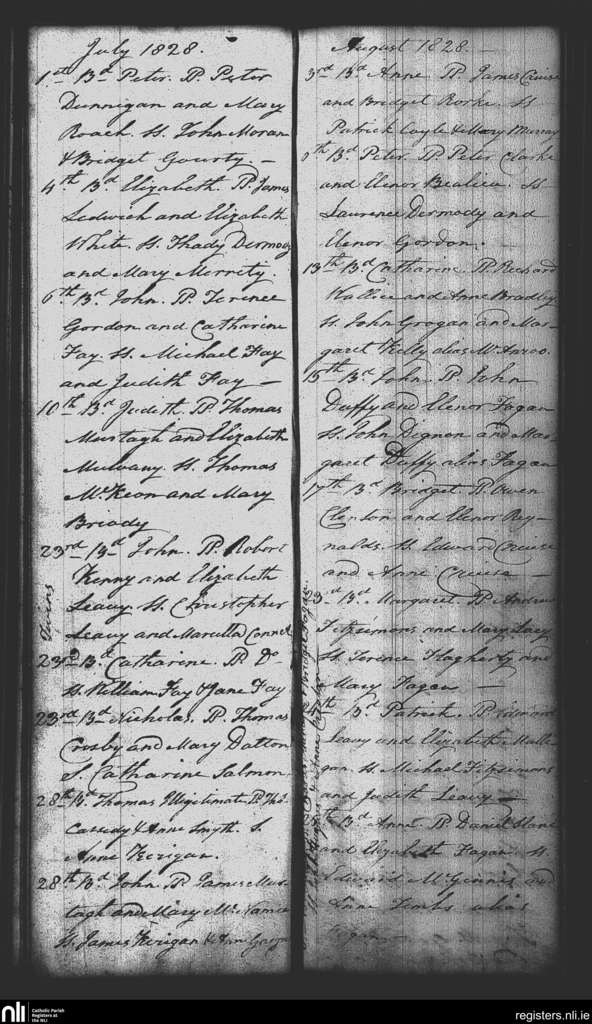 July 1828.
1st Bd Peter. P. Peter
Dunnigan and Mary
Roach. Ss. John Moran
& Bridget Gourty. —
4th Bd Elizabeth. P. James
Ledwich and Elizabeth
White. Ss. Thady Dermody
and Mary Merrity.
6th Bd John. P. Terence
Gordon and Catharine
Fay. Ss. Michael Fay
and Judith Fay —
10th Bd Judith P. Thomas
Murtagh and Elizabeth
Mulvany. Ss. Thomas
McKeon and Mary
Briody
Twins
23rd Bd John. P. Robert
Kenny and Elizabeth
Leavy. Ss. Christopher
Leavy and Marcella Connel
23rd Bd Catharine. P. Do
Ss. William Fay & Jane Fay
23rd Bd Nicholas. P. Thomas
Crosby and Mary Dalton
S. Catharine Salmon
28th Bd Thomas Illigitimate P. Thos
Cassedy & Anne Smyth. S.
Anne Kerigan.
28th Bd John P. James Mur-
tagh and Mary
Ss. James Kerigan & Ann
August 1828. —
3rd Bd Anne P. James Cruise
and Bridget Rorke. Ss
Patrick Coyle & Mary Murray
Bd Peter. P. Peter Clarke
and Elenor Ss
Laurence Dermody and
Elenor Gordon.
13th Bd Catharine. P. Richard
Wallice and Anne Bradley
Ss. John Grogan and Mar-
garet Kelly alias
15th Bd John. P. John
Duffy and Elenor Fagan
Ss. John Dignon and Mar-
garet Duffy alias Fagan
17th Bd Bridget P. Owen
Clenton and Elenor Rey-
nalds. Ss. Edward Cruise
and Anne Cruise —
23rd Bd Margaret. P. Andrew
Fitzsimons and Mary Lacy
Ss. Terence Flagherty and
Mary Fagan —
Bd Patrick. P. Edward
Leavy and Elizabeth Mulli-
gan. Ss. Michael Fitzsimons
and Judith Leavy —
Bd Anne. P. Daniel Slane
and Elizabeth Fagan. Ss.
Edward McGinnis and
Anne alias
Bridget Fagan.
nli
Catholic Parish
Registers at
the NLI
registers.nli.ie